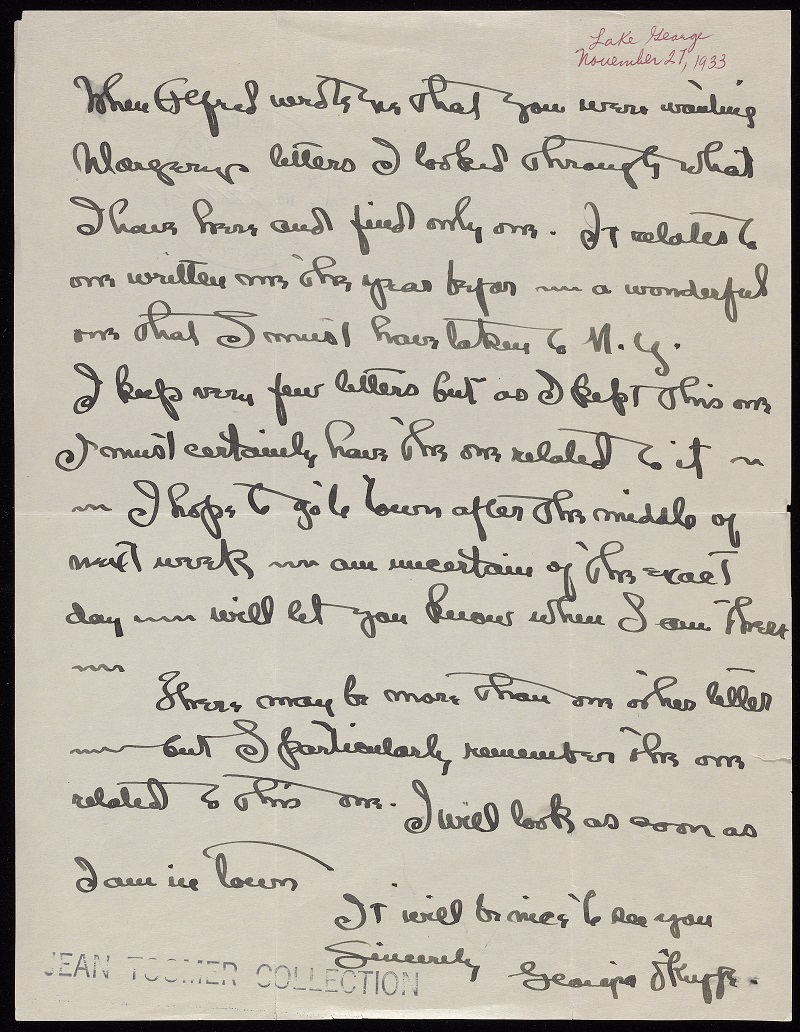 Lake George
November 27, 1933
When Alfred wrote me that you were wanting
Margerys letters I looked through what
I have here and find only one. It relates to
one written me the year before ~ a wonderful
one that I must have taken to N.Y.
I keep very few letters but as I kept this one
I must certainly have the one related to it ~
~ I hope to go to town after the middle of
next week ~ am uncertain of the exact
day ~ will let you know when I am there
~
There may be more than one other letter
~ but I particularly remember the one
related to this one. I will look as soon as
I am in town
It will be nice to see you
Sincerely
Georgia O'Keeffe.
JEAN TOOMER COLLECTION